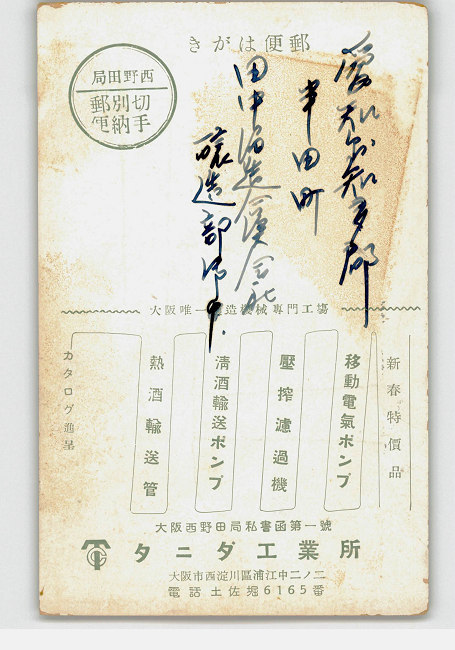 きがは便郵
局田野西
郵別切
便納手
愛知縣知多郡
半田町
田中酒造合資会社
醸造部御中
大阪唯一酒造機械專門工場
新春特價品
移動電氣ポンプ
壓搾濾過機
清酒輸送ポンプ
熱酒輸送管
カタログ進呈
大阪西野田局私書函第一號
タニダ工業所
大阪市西淀川區浦江中二ノ二
電話土佐堀6165番